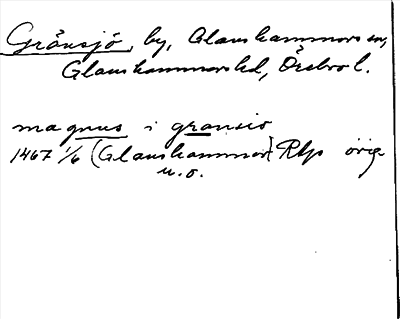 Gränsjö, by, Glanshammars sn,
Glanshammars hd, Örebro l.
magnus i gransio
1467 1/6 (Glanshammar) RAp orig
u.o.